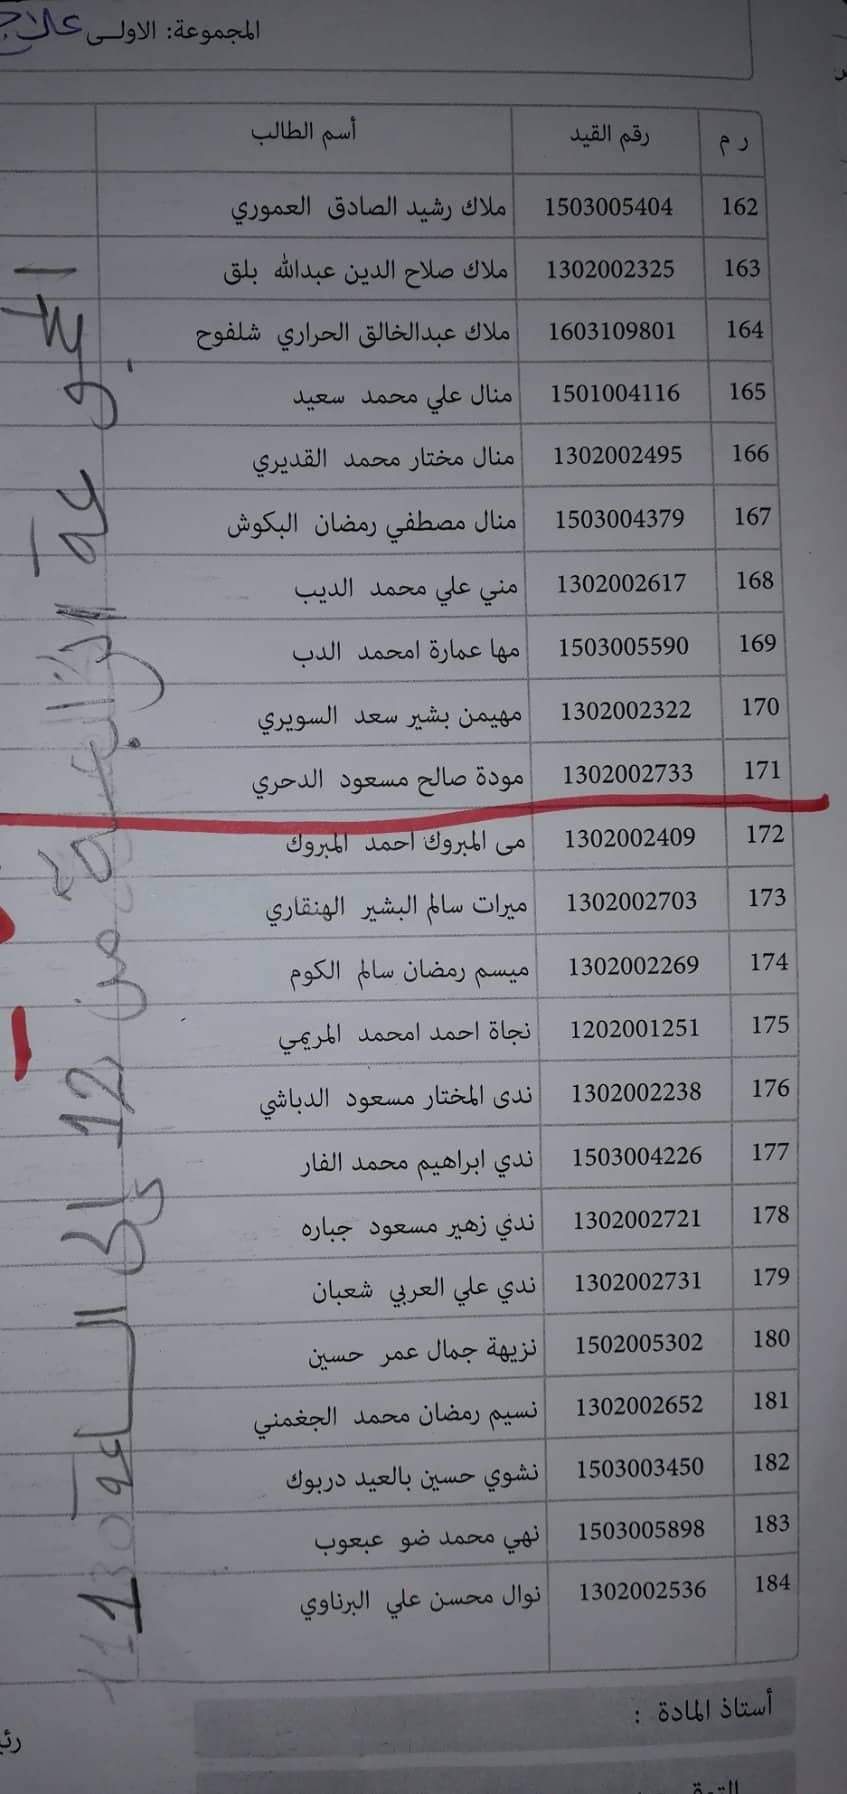 المجموعة: الاولـى علاج
ر م رقم القيد أسم الطالب
162 1503005404 ملاك رشيد الصادق العموري
163 1302002325 ملاك صلاح الدين عبدالله بلق
164 1603109801 ملاك عبدالخالق الحراري شلفوح
165 1501004116 منال علي محمد سعيد
166 1302002495 منال مختار محمد القديري
167 1503004379 منال مصطفي رمضان البكوش
168 1302002617 مني علي محمد الديب
169 1503005590 مها عمارة امحمد الدب
170 1302002322 مهيمن بشير سعد السويري
171 1302002733 مودة صالح مسعود الدحري
172 1302002409 مى المبروك احمد المبروك
173 1302002703 ميرات سالم البشير الهنقاري
174 1302002269 ميسم رمضان سالم الكوم
175 1202001251 نجاة احمد امحمد المريمي
176 1302002238 ندى المختار مسعود الدباشي
177 1503004226 ندي ابراهيم محمد الفار
178 1302002721 ندي زهير مسعود جباره
179 1302002731 ندي علي العربي شعبان
180 1502005302 نزيهة جمال عمر حسين
181 1302002652 نسيم رمضان محمد الجغمني
182 1503003450 نشوي حسين بالعيد دربوك
183 1503005898 نهي محمد ضو عبعوب
184 1302002536 نوال محسن علي البرناوي
المجموعة الرابعة من 12 إلى الساعة 1
أستاذ المادة :